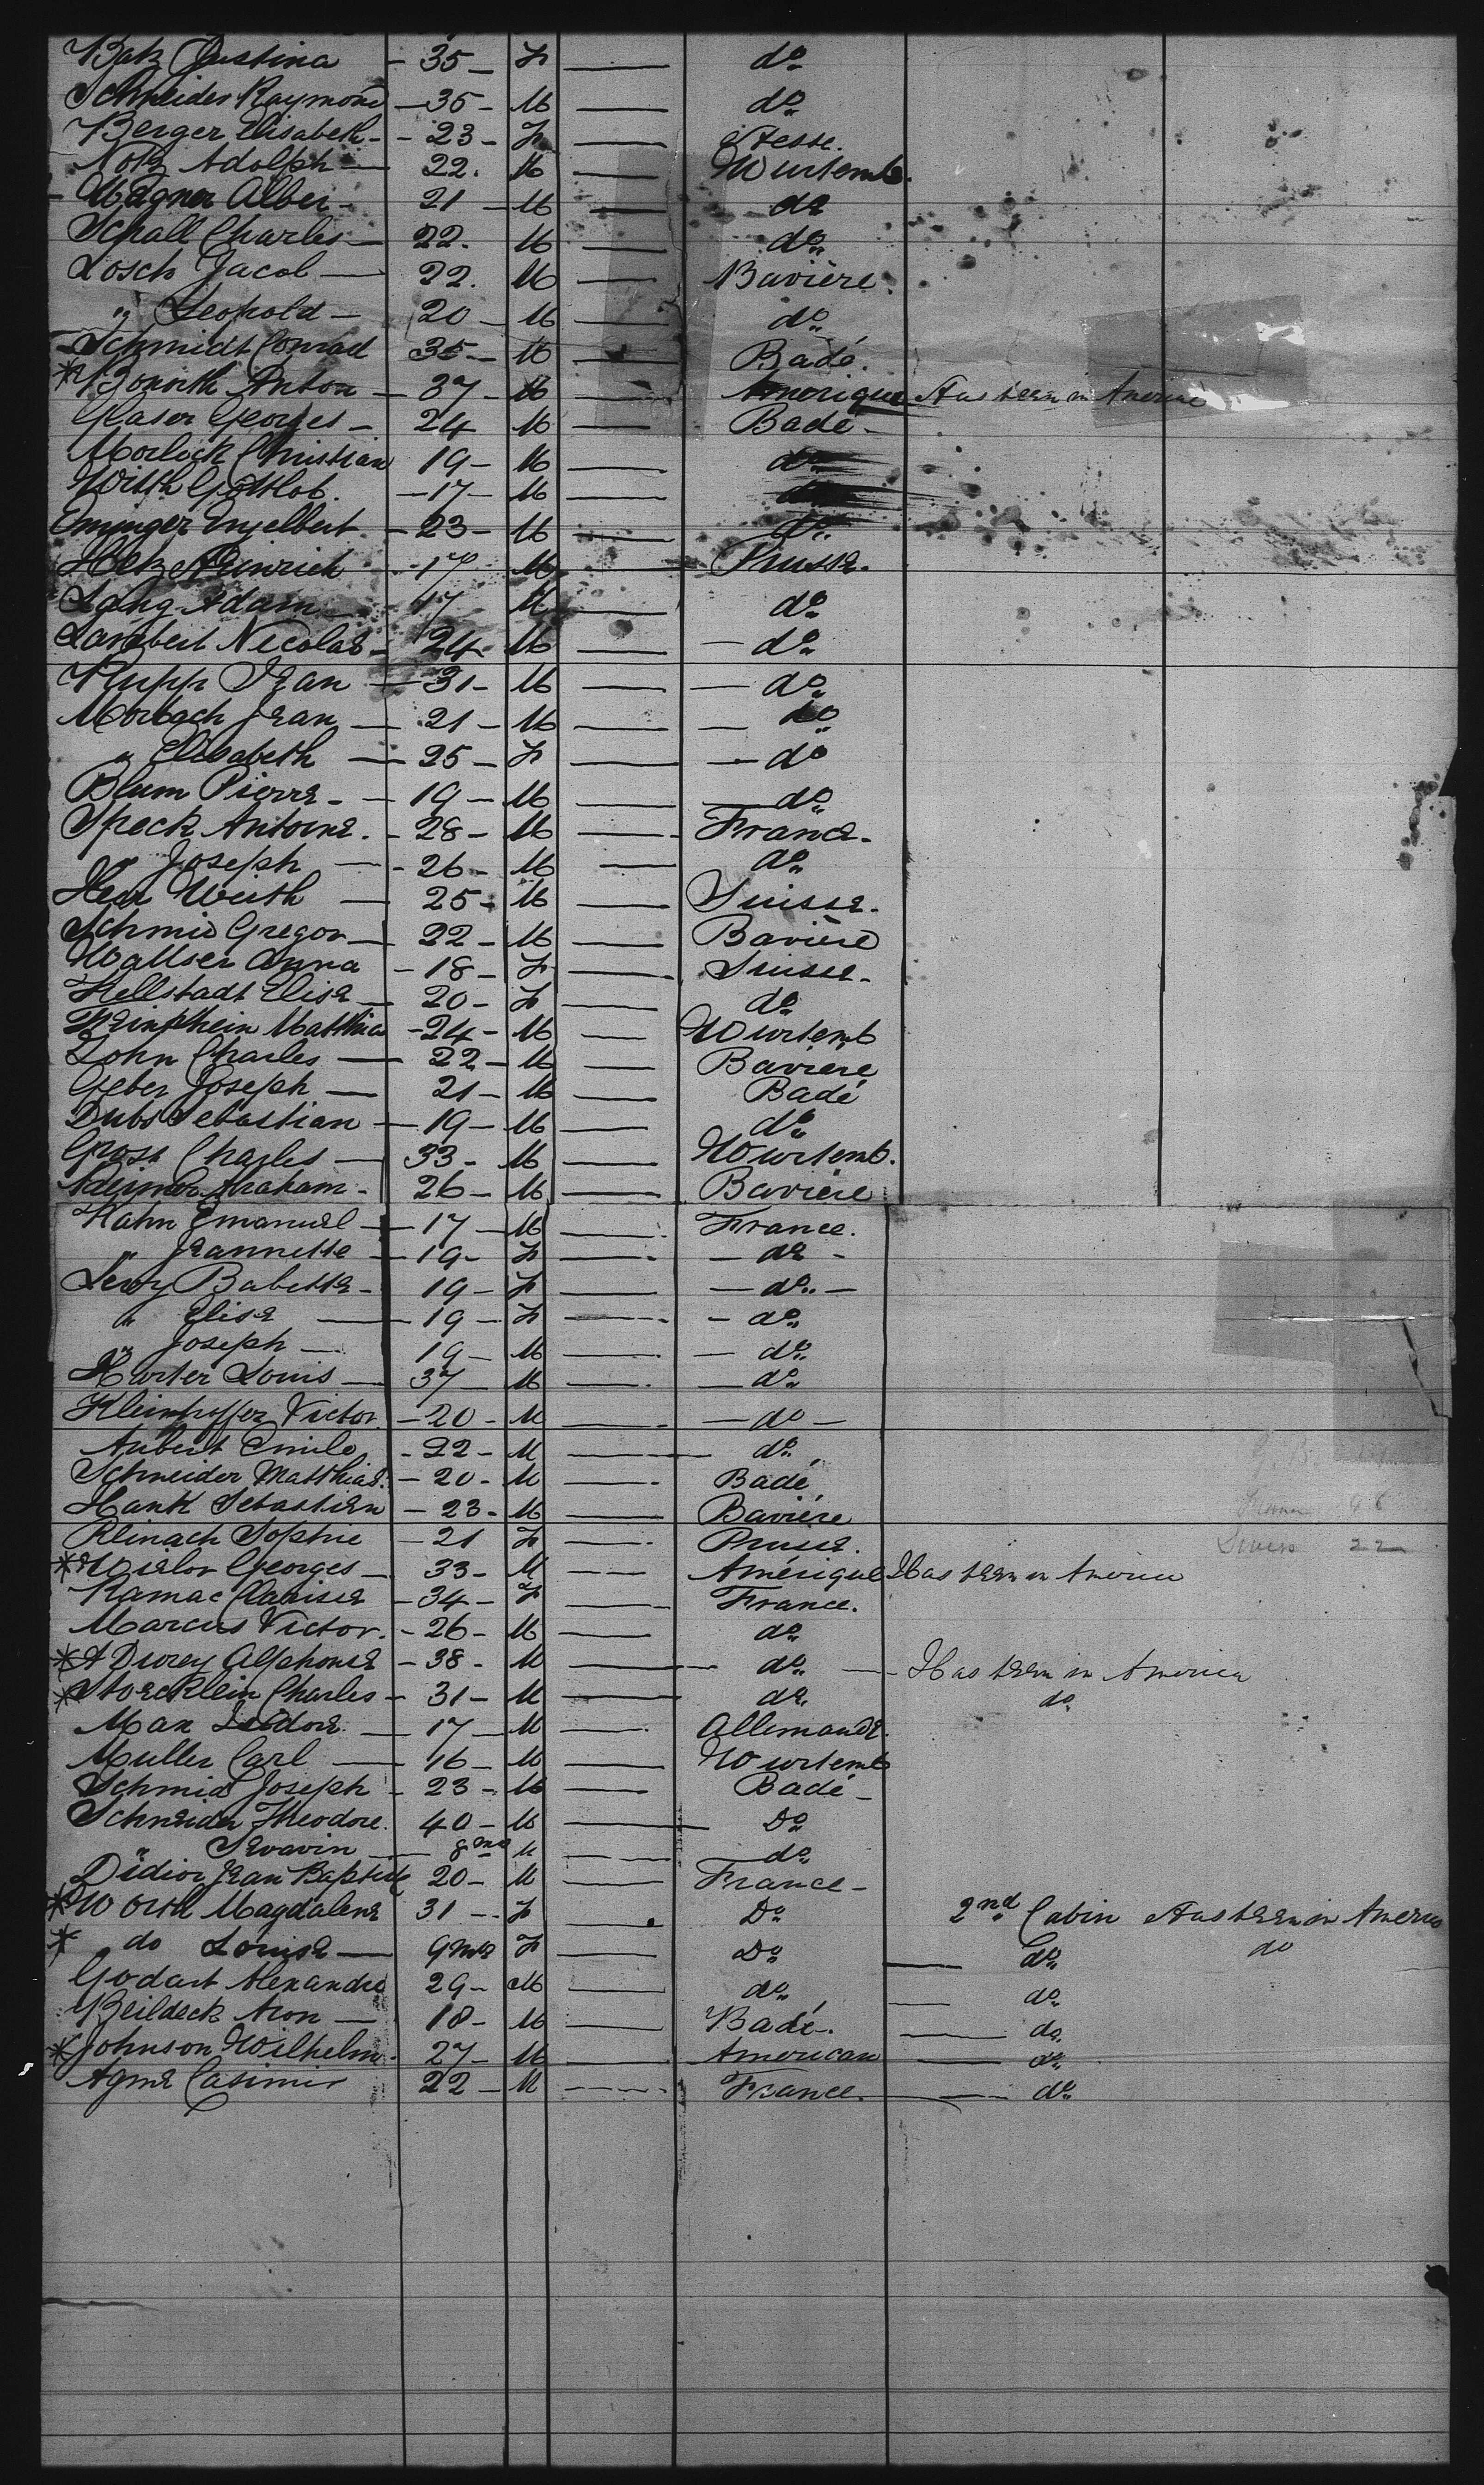 Batz Justina - 35 - F — do
Schneider Raymond - 35 - M — do
Berger Elisabeth - 23 - F — Hesse.
Notz Adolph — 22. M — Wurtemb.
Wagner Alber - 21 - M — do
Schall Charles — 22. M — do
Losch Jacob — 22. M — Bavière.
" Leopold — 20 - M — do
Schmidt Conrad 35 - M — Badé.
* Anton - 37 - M Amerique Has been in America
Glaser Georges - 24 M — Badé -
Morlock Christian 19 - M — do
Wirth Gottlob. - 17 - M — do
Eminger Engelbert - 23 - M — do
Heinrich - 17 M — Prusse.
Lang Adam 17 M — do
Lambert Nicolas - 24 M — do
Rupp Jean - 31 - M — do
Morbach Jean - 21 - M — do
" Elisabeth - 25 - F — do
Blum Pierre - 19 - M — do
Speck Antoine. - 28 - M — France -
" Joseph - 26 - M — do
Werth — 25 - M — Suisse.
Schmid Gregor - 22 - M — Bavière
Wallser Anna - 18 - F — Suisse -
Hellstadt Elise - 20 - F — do
Matthias - 24 - M — Wurtemb
John Charles — 22 - M — Bavière
Geber Joseph — 21 - M — Badé
Dubs Sebastian - 19 - M — do
Gross Charles — 33 - M — Wurtemb.
Abraham - 26 - M — Bavière
Hahn Emanuel - 17 - M — France.
" Jeannette - 19 - F — do -
Levy Babette - 19 - F — do -
" Elise — 19 - F — do
" Joseph — 19 - M — do
Harter Louis — 37 - M — do
Kleinhoffer Victor. - 20 - M — do -
Aubert Emile - 22 - M — do
Schneider Matthias. - 20 - M — Badé
Hank Sebastien - 23 - M — Bavière
Reinach Sophie - 21 F — Prusse.
* Georges - 33 - M — Amérique Has been in America
Ramac - 34 - F — France.
Marcus Victor. - 26 - M — do
* Alphonse - 38 - M — do — Has been in America
* Stoecklein Charles - 31 - M — do do
Max Isidore. — 17 - M — Allemande.
Muller Carl — 16 - M — Wurtemb
Schmid Joseph - 23 - M — Badé -
Schneider Theodore. 40 - M — Do
" — 8 mos M — do
Didior Jean Baptiste 20 - M — France -
* Worth Magdalene 31 - F — Do 2nd Cabin Has been in America
* do Louise — 9 mos F — Do — do do
Godart Alexandre 29 - M — do — do
Beildeck Aron — 18 - M — Badé. — do
* Johnson Wilhelm - 27 - M — American — do
Agme Casimir 22 - M — France. — do